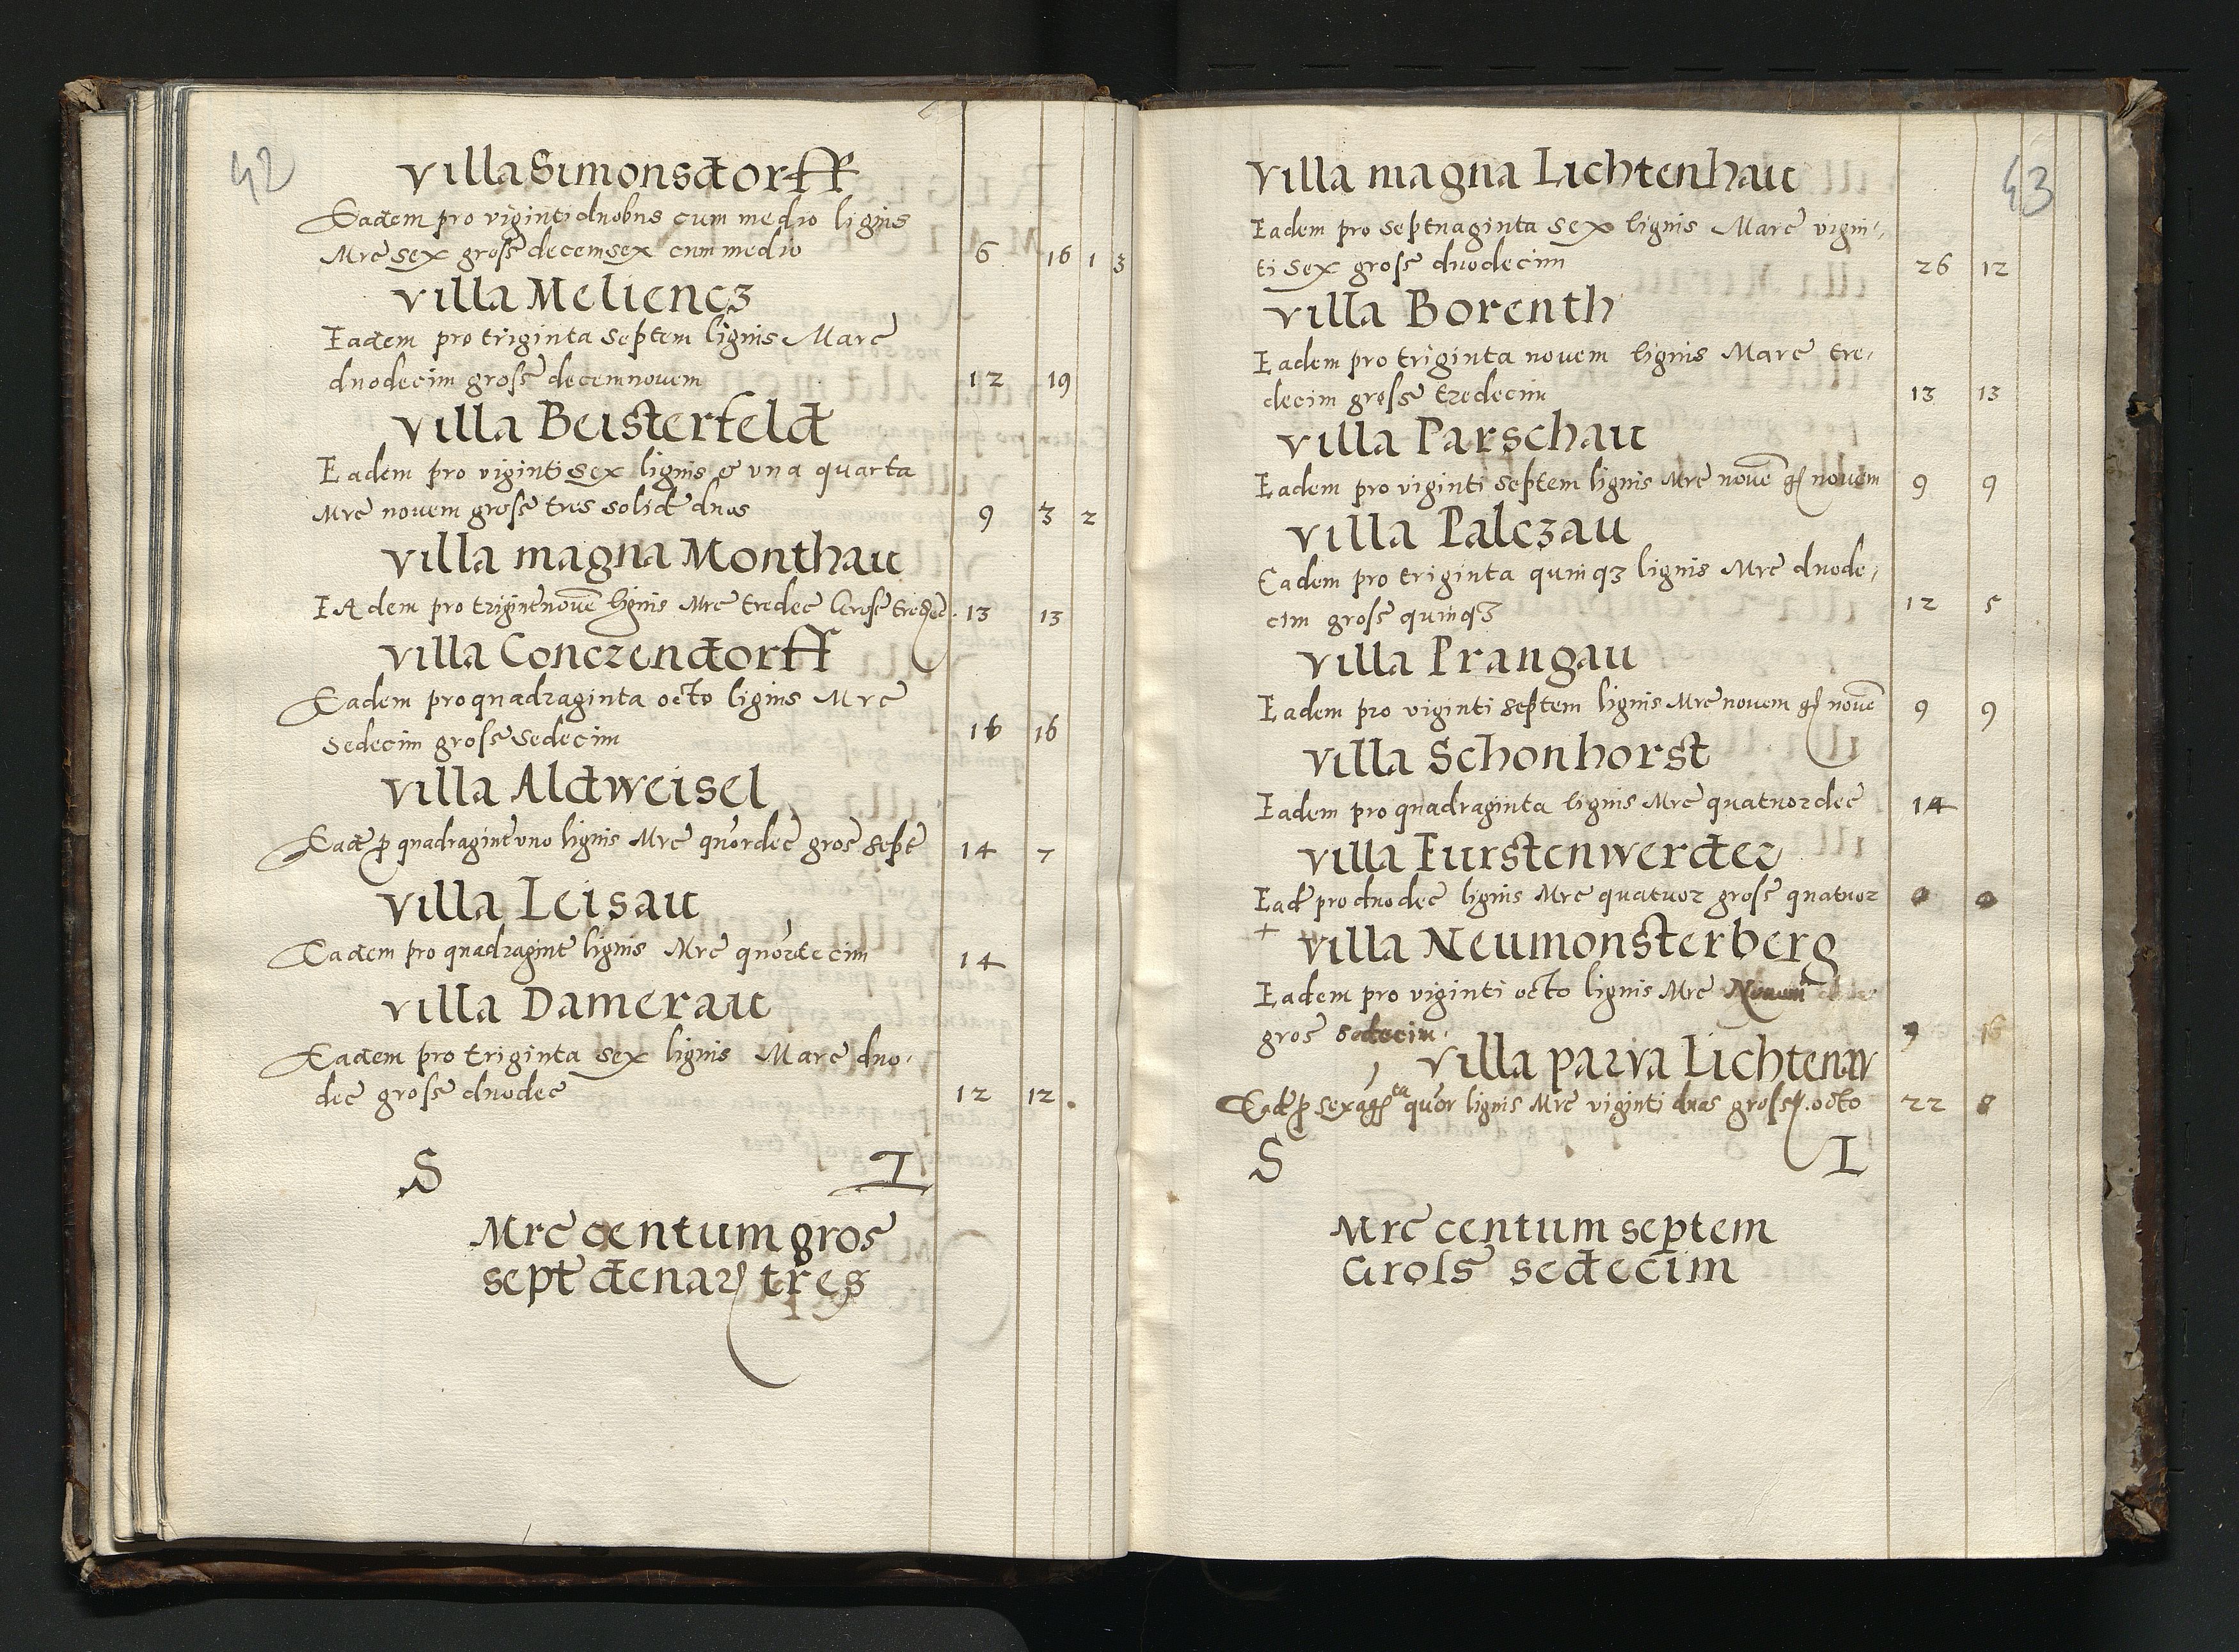 42
Villa Simonsdorff
Eadem pro viginti duobus cum medio lignis
Mrc sex gross decemsex cum medio 6 16 1 3
Villa Meliencz
Eadem pro triginta septem lignis Marc
duodecim gross decemnovem 12 19
Villa Beisterfeld
Eadem pro viginti sex lignis & vna quarta
Mrc novem gross tres solid duos 9 3 2
Villa magna Monthau
EAdem pro trigint novē lignis Mrc tredec Gross tredec 13 13
Villa Conczendorff
Eadem pro quadraginta octo lignis Mrc
Sedecim gross Sedecim 16 16
Villa Aldweisel
Ead p quadragint vno lignis Mrc quordec gros sept 14 7
Villa Leisau
Eadem pro quadragint lignis Mrc quordecim 14
Villa Damerau
Eadem pro triginta sex lignis Marc duo-
dec gross duodec 12 12
S I
Mrc centum gros
sept denar tres
43
Villa magna Lichtenhau
Eadem pro septuaginta sex lignis Marc vigin-
ti sex gross duodecim 26 12
Villa Borenth
Eadem pro triginta novem lignis Marc tre-
decim gross tredecim 13 13
Villa Parschau
Eadem pro viginti septem lignis Mrc novē g novem 9 9
Villa Palczau
Eadem pro triginta quinqȝ lignis Mrc duode-
cim gross quinqȝ 12 5
Villa Prangau
Eadem pro viginti septem lignis Mrc novem g novē 9 9
Villa Schonhorst
Eadem pro quadraginta lignis Mrc quatuordec 14
Villa Furstenwerder
Ead pro duodec lignis Mrc quatuor gross quatuor
+ Villa Neumonsterberg
Eadem pro viginti octo lignis Mrc Novem
gros sedecim 9 16
Villa parva Lichtenaw
Ead p sexag ta quor lignis Mrc viginti duas gross octo 22 8
S I
Mrc centum septem
Gross sedecim